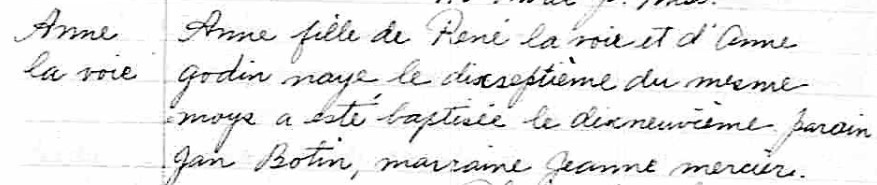 Anne
la voie
Anne fille de René la voie et d'Anne
godin naye, le dixseptième du mesme
moys a esté baptisée le dixneuvième parain
Jan Botin, marraine Jeanne mercier.